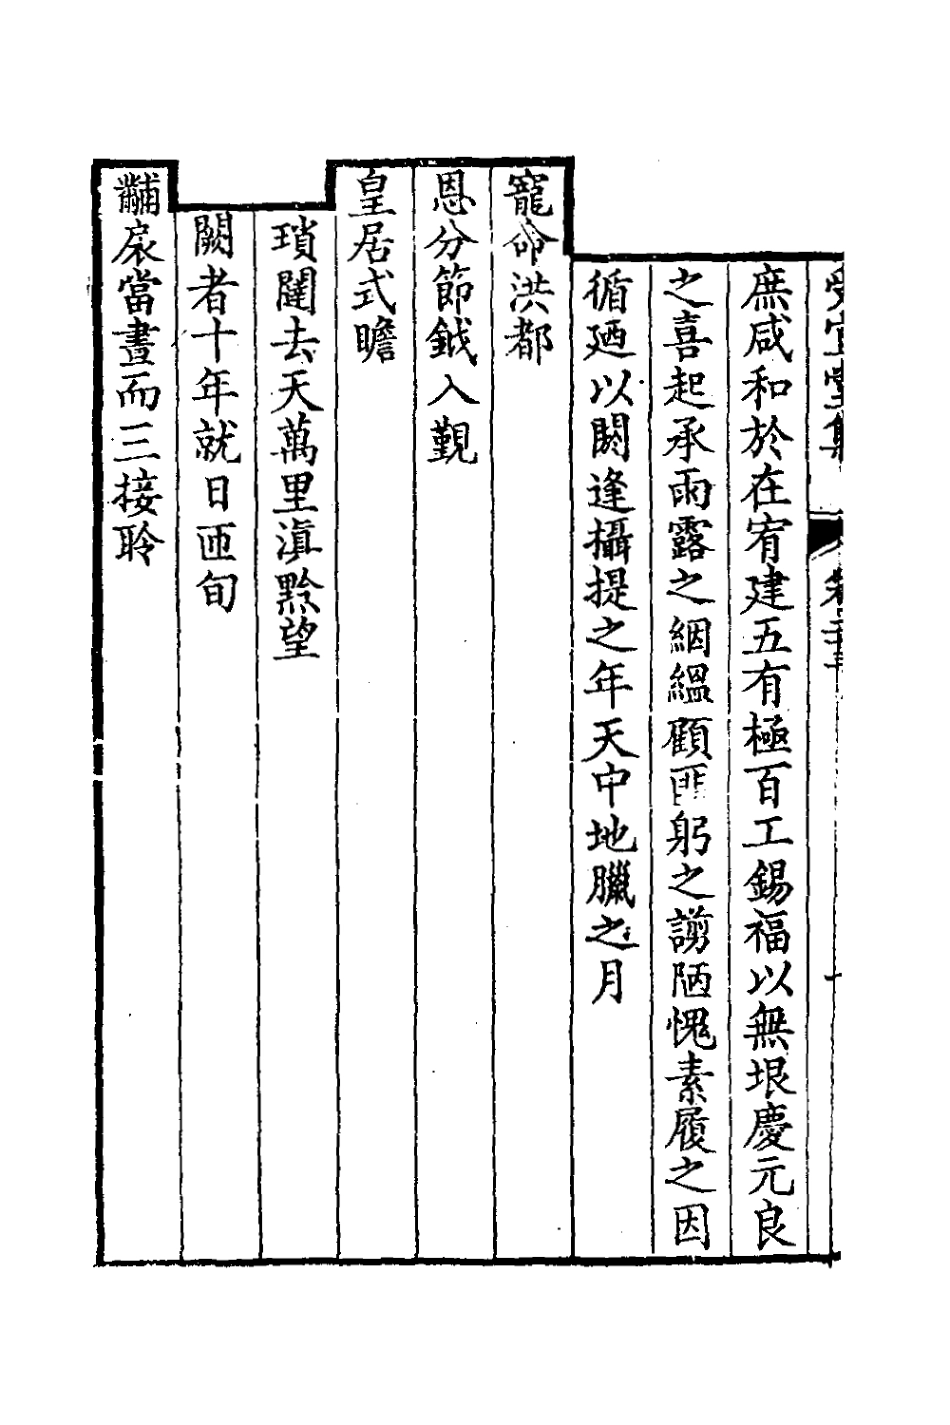 受宜堂集 卷二十三 十
庶咸和於在宥建五有極百工錫福以無垠慶元良
之喜起承雨露之絪縕顧匪躬之謭陋愧素履之因
循廼以閼逢攝提之年天中地臘之月
寵命洪都
恩分節鉞入覲
皇居式瞻
瑣闥去天萬里滇黔望
闕者十年就日匝旬
黼扆當晝而三接聆